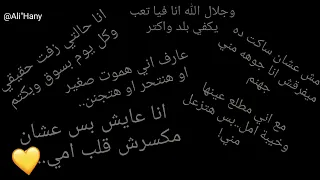 @Ali"Hany
وجلال الله انا فيا تعب
يكفي بلد واكتر
انا حالتي زفت حقيقي
وكل يوم بسوق وبكتم
مش عشان ساكت ده
ميفرقش انا جوهه مني
جهنم
عارف اني هموت صغير
او هنتحر او هتجنن..
مع اني مطلع عينها
وخيبة امل..بس هتزعل
مني!
انا عايش بس عشان
مكسرش قلب امي..